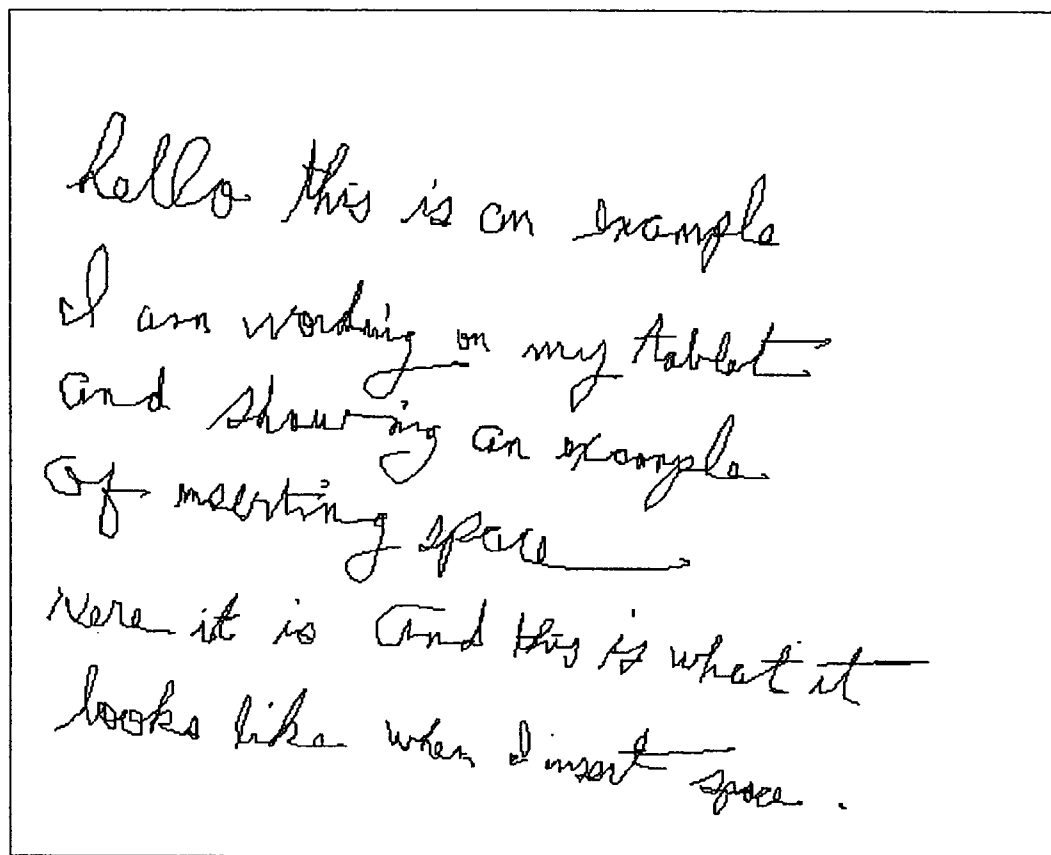 hello this is an example
I am wording on my tablet
and showing an example
of inserting space
Here it is and this is what it
looks like when I insert space.